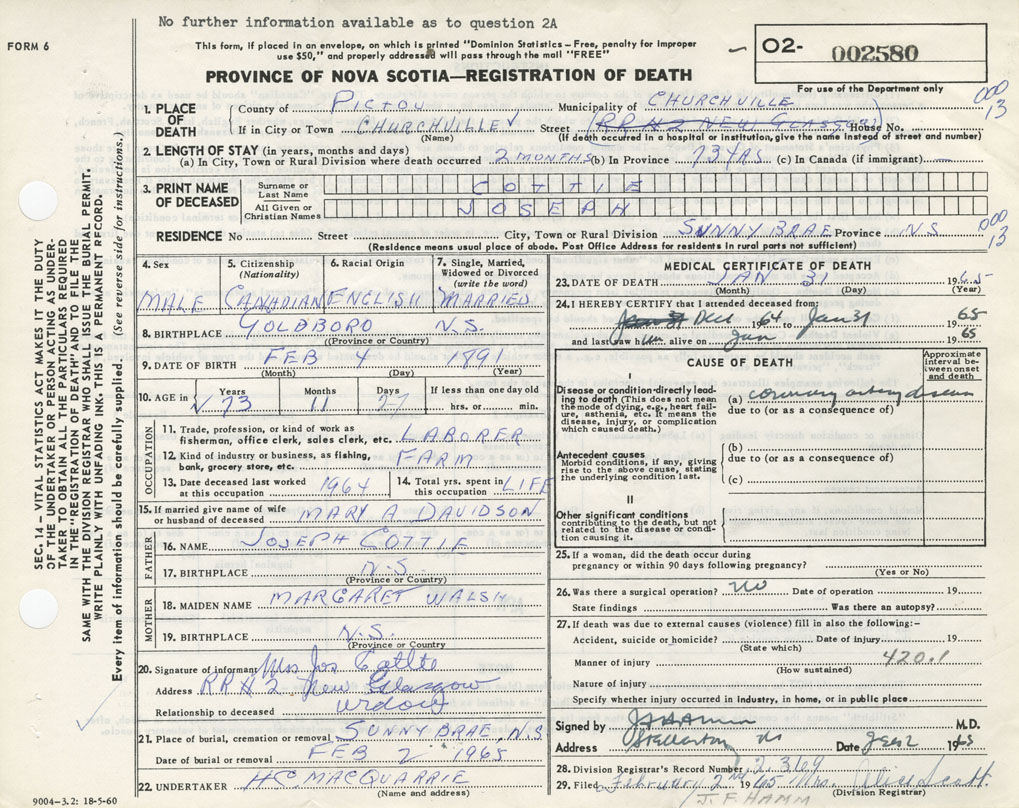 No further information available as to question 2A
FORM 6
This form, if placed in an envelope, on which is printed "Dominion Statistics – Free, penalty for improper
use $50," and properly addressed will pass through the mail "FREE"
O2- 002580
For use of the Department only
PROVINCE OF NOVA SCOTIA—REGISTRATION OF DEATH
000
13
1. PLACE OF DEATH
County of PICTOU Municipality of CHURCHVILLE
If in City or Town CHURCHVILLE Street (RR #2 NEW GLASGOW) House No.
(Name) (If death occurred in a hospital or institution, give the name instead of street and number)
2. LENGTH OF STAY (in years, months and days)
(a) In City, Town or Rural Division where death occurred 2 MONTHS (b) In Province 73 YRS (c) In Canada (if immigrant)
3. PRINT NAME OF DECEASED
Surname or Last Name COTTIE
All Given or Christian Names JOSEPH
RESIDENCE No Street City, Town or Rural Division SUNNY BRAE Province N.S
000
13
(Residence means usual place of abode. Post Office Address for residents in rural parts not sufficient)
4. Sex
MALE
5. Citizenship (Nationality)
CANADIAN
6. Racial Origin
ENGLISH
7. Single, Married, Widowed or Divorced (write the word)
MARRIED
8. BIRTHPLACE GOLDBORO N.S.
(Province or Country)
9. DATE OF BIRTH FEB 4 1891
(Month) (Day) (Year)
10. AGE in Years 73 Months 11 Days 27 If less than one day old
hrs. or min.
OCCUPATION
11. Trade, profession, or kind of work as
fisherman, office clerk, sales clerk, etc. LABORER
12. Kind of industry or business, as fishing,
bank, grocery store, etc. FARM
13. Date deceased last worked
at this occupation 1964
14. Total yrs. spent in
this occupation LIFE
15. If married give name of wife
or husband of deceased MARY A DAVIDSON
FATHER
16. NAME JOSEPH COTTIE
17. BIRTHPLACE N.S.
(Province or Country)
MOTHER
18. MAIDEN NAME MARGARET WALSH
19. BIRTHPLACE N.S.
(Province or Country
20. Signature of informant Mrs Jos Cottie
Address RR#2 New Glasgow
Relationship to deceased widow
21. Place of burial, cremation or removal SUNNY BRAE, N.S
Date of burial or removal FEB 2 1965
22. UNDERTAKER H C MACQUARRIE
(Name and address)
MEDICAL CERTIFICATE OF DEATH
23. DATE OF DEATH JAN 31 1965
(Month) (Day) (Year)
24. I HEREBY CERTIFY that I attended deceased from:
Dec 1964 to Jan 31 1965
and last saw h alive on Jan 1965
CAUSE OF DEATH
Approximate interval between onset and death
I
Disease or condition directly leading to death (This does not mean
the mode of dying, e.g., heart failure, asthenia, etc. It means the
disease, injury, or complication
which caused death.)
(a) coronary artery disease
due to (or as a consequence of)
Antecedent causes
Morbid conditions, if any, giving
rise to the above cause, stating
the underlying condition last.
(b)
due to (or as a consequence of)
(c)
II
Other significant conditions
contributing to the death, but not
related to the disease or condition
causing it.
25. If a woman, did the death occur during
pregnancy or within 90 days following pregnancy?
(Yes or No)
26. Was there a surgical operation? no Date of operation 19
State findings Was there an autopsy?
27. If death was due to external causes (violence) fill in also the following:–
Accident, suicide or homicide? Date of injury 19
(State which)
Manner of injury 420.1
(How sustained)
Nature of injury
Specify whether injury occurred in industry, in home, or in public place
Signed by J F Hamm M.D.
Address Stellarton NS Date 2 1965
28. Division Registrar's Record Number 2369
29. Filed February 2nd 1965 Mrs. Alice Scott
(Division Registrar)
J. F. HAMM
SEC. 14 – VITAL STATISTICS ACT MAKES IT THE DUTY
OF THE UNDERTAKER OR PERSON ACTING AS UNDERTAKER
TO OBTAIN ALL THE PARTICULARS REQUIRED
IN THE "REGISTRATION OF DEATH" AND TO FILE THE
SAME WITH THE DIVISION REGISTRAR WHO SHALL ISSUE THE BURIAL PERMIT.
WRITE PLAINLY WITH UNFADING INK. THIS IS A PERMANENT RECORD.
Every item of information should be carefully supplied. (See reverse side for instructions.)
9004-3.2: 18-5-60